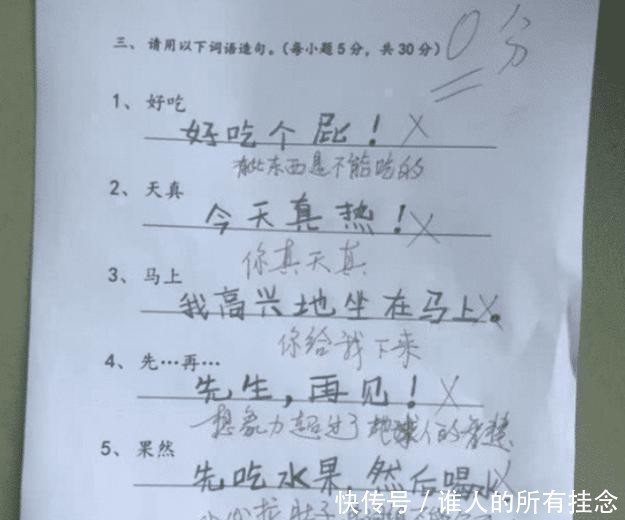 三、请用以下词语造句。(每小题5分，共30分)
0分
1、好吃
好吃个屁！
有些东西是不能吃的
2、天真
今天真热！
你真天真
3、马上
我高兴地坐在马上。
你给我下来
4、先…再…
先生，再见！
想象力超过了地球人的智慧
5、果然
先吃水果，然后喝
快传号／谁人的所有挂念